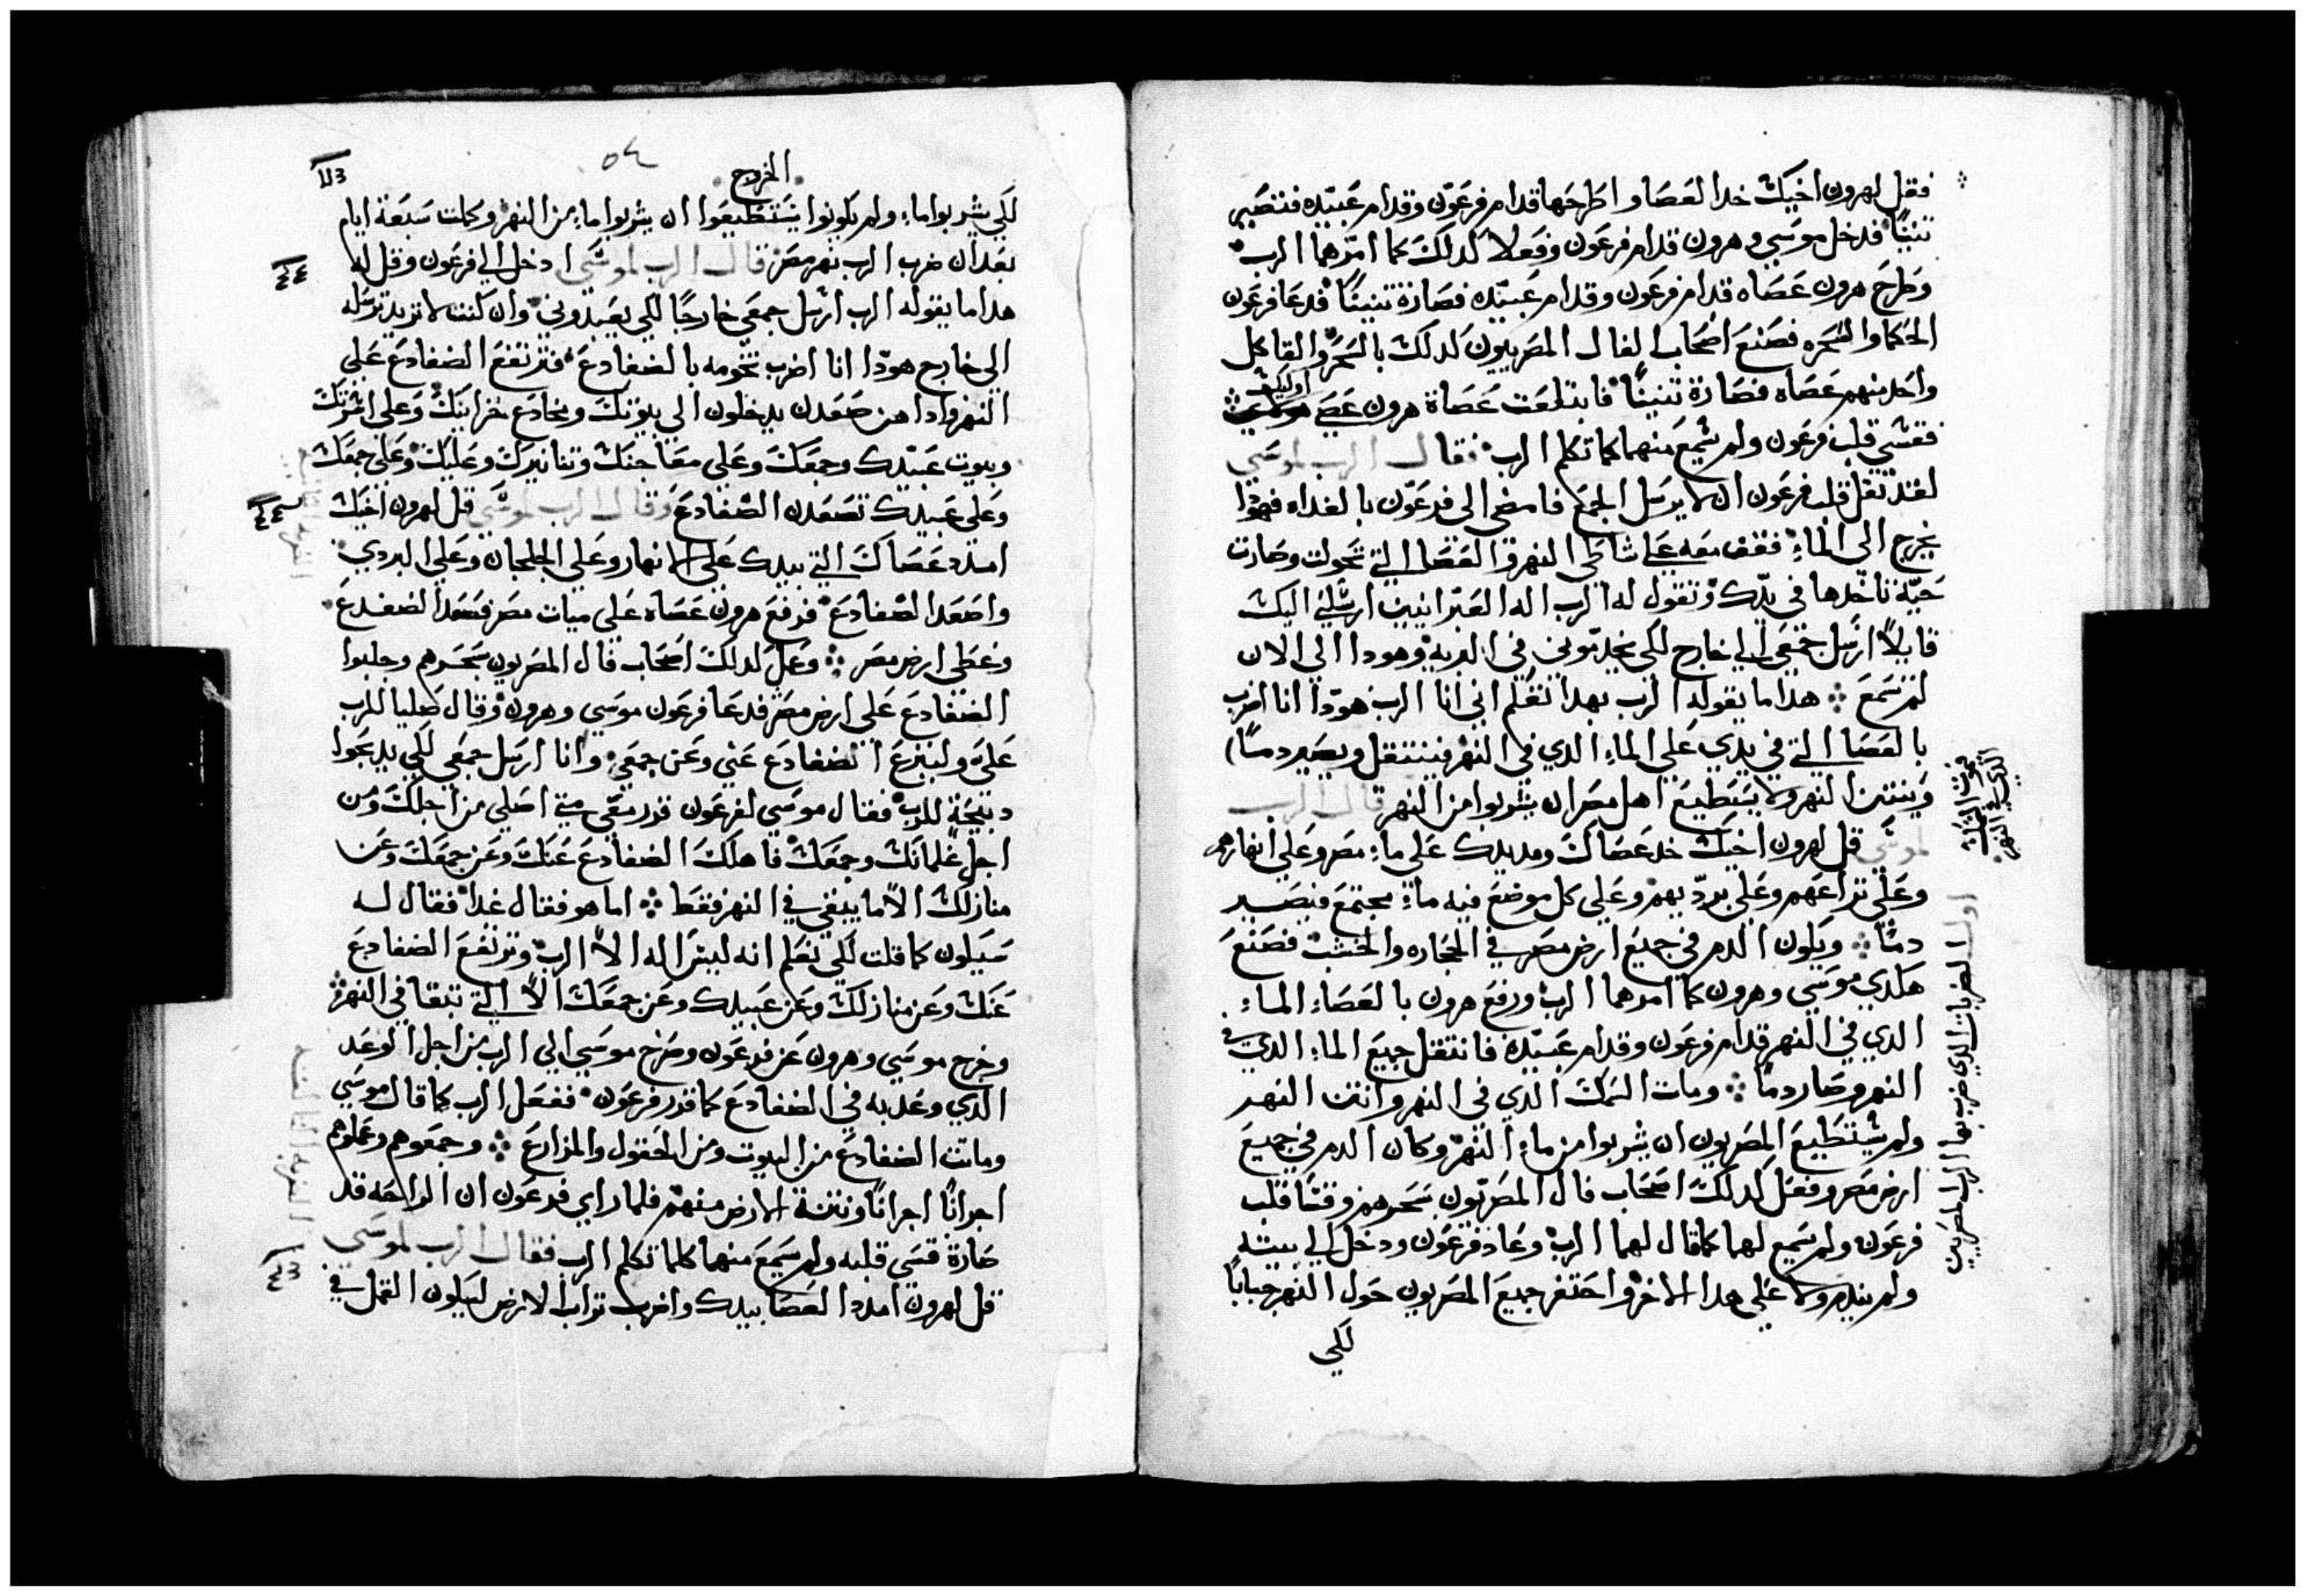 فقل لهرون اخيك خد العصا واطرحها قدام فرعون وقدام عبيده فتصير
تنينًا فدخل موسي وهرون قدام فرعون وفعلا كدلك كما امرهما الرب
وطرح هرون عصاه قدام فرعون وقدام عبيده فصارة تنينًا فدعا فرعون
الحكما والسحره فصنع اصحاب الفال المصريون كدلك بالسحر والقا كل
واحد منهم عصاه فصارة تنينًا فابتلعت عصاة هرون عصي اوليك
فقسي قلب فرعون ولم يسمع منهما كما تكلم الرب فقال الرب لموسي
لقد تقل قلب فرعون ان لا يرسل الجمع فامضي الي فرعون بالغداه فهودا
يخرج الي الماء فقف معه علي شاطي النهر والعصا التي تحولت وصارت
حيّة تاخدها في يدك وتقول له الرب اله العبرانيين ارسلني اليك
قايلاً ارسل جمعي الي خارج لكي يخدموني في البريه وهودا الي الان
لم تسمع هدا ما يقوله الرب بهدا تعلم اني انا الرب هودا انا اضرب
بالعصا التي في يدي علي الماء الدي في النهر فينتقل ويصير دمًا
وينتن النهر ولا يستطيع اهل مصر ان يشربوا من النهر قال الرب
لموسي قل لهرون اخيك خد عصاك ومد يدك علي ماء مصر وعلي انهارهم
وعلي تراعهم وعلي برديهم وعلي كل موضع فيه ماء مجتمع فيصير
دمًا ويكون الدم في جميع ارض مصر في الحجاره والخشب فصنع
هكدي موسي وهرون كما امرهما الرب ورفع هرون بالعصاء الماء
الدي في النهر قدام فرعون وقدام عبيده فانتقل جميع الماء الدي في
النهر وصار دمًا ومات السمك الدي في النهر وانتن النهر
ولم يستطيع المصريون ان يشربوا من ماء النهر وكان الدم في جميع
ارض مصر وفعل كدلك اصحاب فال المصريون بسحرهم وقسا قلب
فرعون ولم يسمع لهما كما قال لهما الرب وعاد فرعون ودخل الي بيته
ولم يندم ولا علي هدا الاخر واحتفر جميع المصريون حول النهر جبابًا
لكي
الدي في النهر
اولا الضربات الدي ضرب بها الرب المصريين
الخروج
٥٤
لكي يشربوا ماء ولم يكونوا يستطيعوا ان يشربوا ماء من النهر وكملت سبعة ايام
بعد ان ضرب الرب نهر مصر قال الرب لموسي ادخل الي فرعون وقل له
هدا ما يقوله الرب ارسل جمعي خارجًا لكي يعبدوني وان كنت لا تريد ترسله
الي خارج هودا انا اضرب تخومه بالضفادع فترتفع الضفادع علي
النهر وادا هن صعدن يدخلون الي بيوتك ومخادع خزاينك وعلي اسرتك
وبيوت عبيدك وجمعك وعلي معاجنك وتنانيرك وعليك وعلي جمعك
وعلي عبيدك تصعدن الضفادع وقال الرب لموسي قل لهرون اخيك
امدد عصاك التي بيدك علي الانهار وعلي الخلجان وعلي البردي
واصعد الضفادع فرفع هرون عصاه علي ميات مصر فصعد الضفدع
وغطي ارض مصر وعمل كدلك اصحاب فال المصريون بسحرهم وجلبوا
الضفادع علي ارض مصر فدعا فرعون موسي وهرون وقال صليا للرب
علي ولينزع الضفادع عني وعن جمعي وانا ارسل جمعي لكي يدبحوا
دبيحة للرب فقال موسي لفرعون قدر معي متي اصلي من اجلك ومن
اجل غلمانك وجمعك فاهلك الضفادع عنك وعن جمعك وعن
منازلك الا ما يبقي في النهر فقط اما هو فقال غدا فقال له
سيكون كما قلت لكي تعلم انه ليس اله الا الرب وترتفع الضفادع
عنك وعن منازلك وعن عبيدك وعن جمعك الا التي تبقا في النهر
وخرج موسي وهرون عن فرعون وصرخ موسي الي الرب من اجل الوعد
الدي وعد به في الضفادع كما قدر فرعون ففعل الرب كما قال موسي
وماتت الضفادع من البيوت ومن الحقول والمزارع وجمعوهم وعملوهم
اجرانًا اجرانًا ونتنة الارض منهم فلما راي فرعون ان الراحه قد
صارة قسي قلبه ولم يسمع منهما كلما تكلم الرب فقال الرب لموسي
قل لهرون امدد العصا بيدك واضرب تراب الارض ليكون القمل في